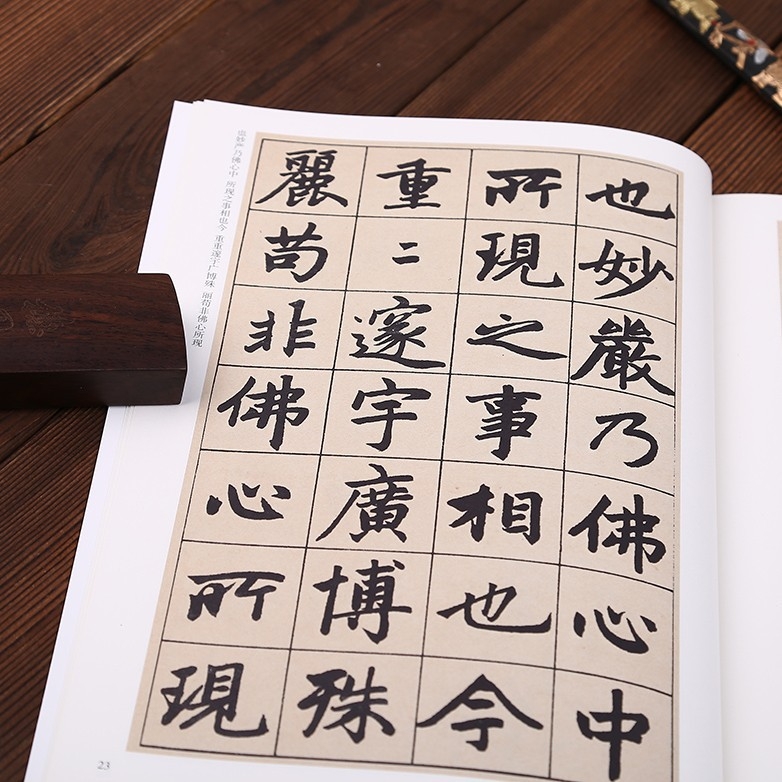 也妙嚴乃佛心中
所現之事相也今
重二邃宇廣博殊
麗苟非佛心所現
也妙严乃佛心中 所现之事相也今 重重邃宇广博殊 丽苟非佛心所现
23